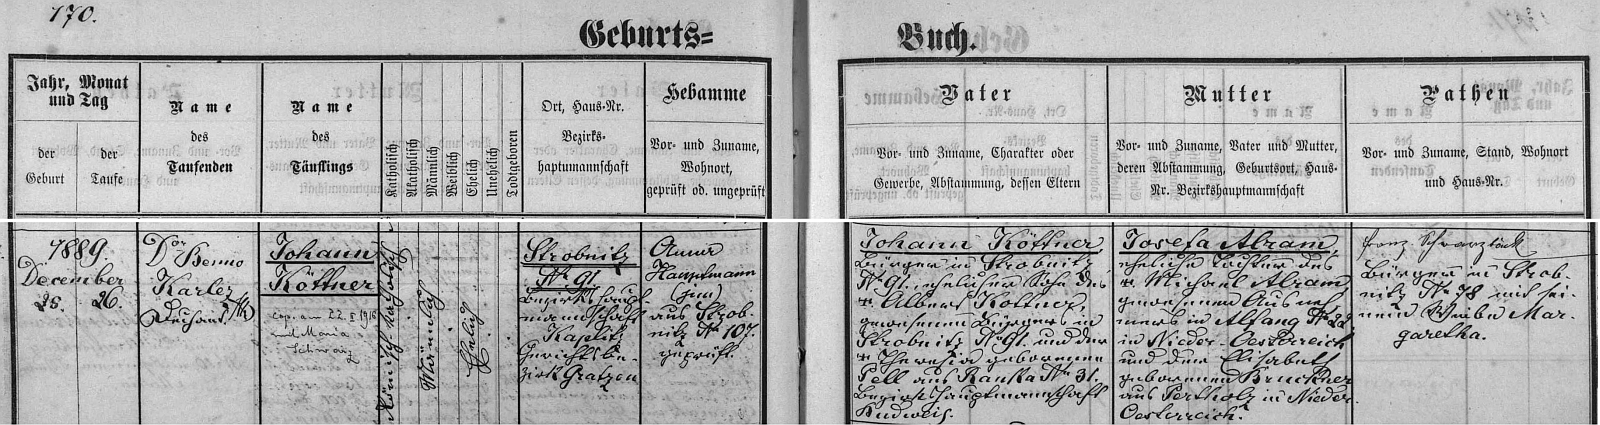 170.
Geburts=
Buch.
Jahr, Monat
und Tag
der
Geburt
der
Taufe
Name
des
Taufenden
Name
des
Täuflings
Katholisch
Akatholisch
Männlich
Weiblich
Ehelich
Unehelich
Todtgeboren
Ort, Haus-Nr.
Bezirks-
hauptmannschaft
Hebamme
Vor- und Zuname,
Wohnort,
geprüft od. ungeprüft
Vater
Vor- und Zuname, Charakter oder
Gewerbe, Abstammung, dessen Eltern
Mutter
Vor- und Zuname, Vater und Mutter,
deren Abstammung, Geburtsort, Haus-
Nr. Bezirkshauptmannschaft
Pathen
Vor- und Zuname, Stand, Wohnort
und Haus-Nr.
1889.
December
25. 26.
Dor Benno
Karlez
Dechant
Johann
Köttner
cop. am 22. II 1916
mit Maria
Schwarz
Römisch katholisch
Männlich
Ehelich
Strobnitz
No 91.
Bezirkshaupt-
mannschaft
Kaplitz
Gerichtsbe-
zirk Gratzen
Anna
Kappelmann
(jun)
aus Strob-
nitz No 107.
geprüft.
Johann Köttner,
Bürger in Strobnitz
No 91. ehelicher Sohn des
Albert Köttner,
gewesenen Bürgers in
Strobnitz No 91. und der
Theresia geborenen
Pell aus Rauka No 31.
Bezirkshauptmannschaft
Budweis.
Josefa Abram,
eheliche Tochter des
Michael Abram,
gewesenen Ausneh-
mers in Alfang No 22
in Nieder-Oesterreich
und der Elisabeth
geborenen Bruckner
aus Pertholz in Nieder
Oesterreich.
Franz Schwarzböck
Bürger in Strob-
nitz No 78 mit sei-
nem Weibe Mar-
garetha.